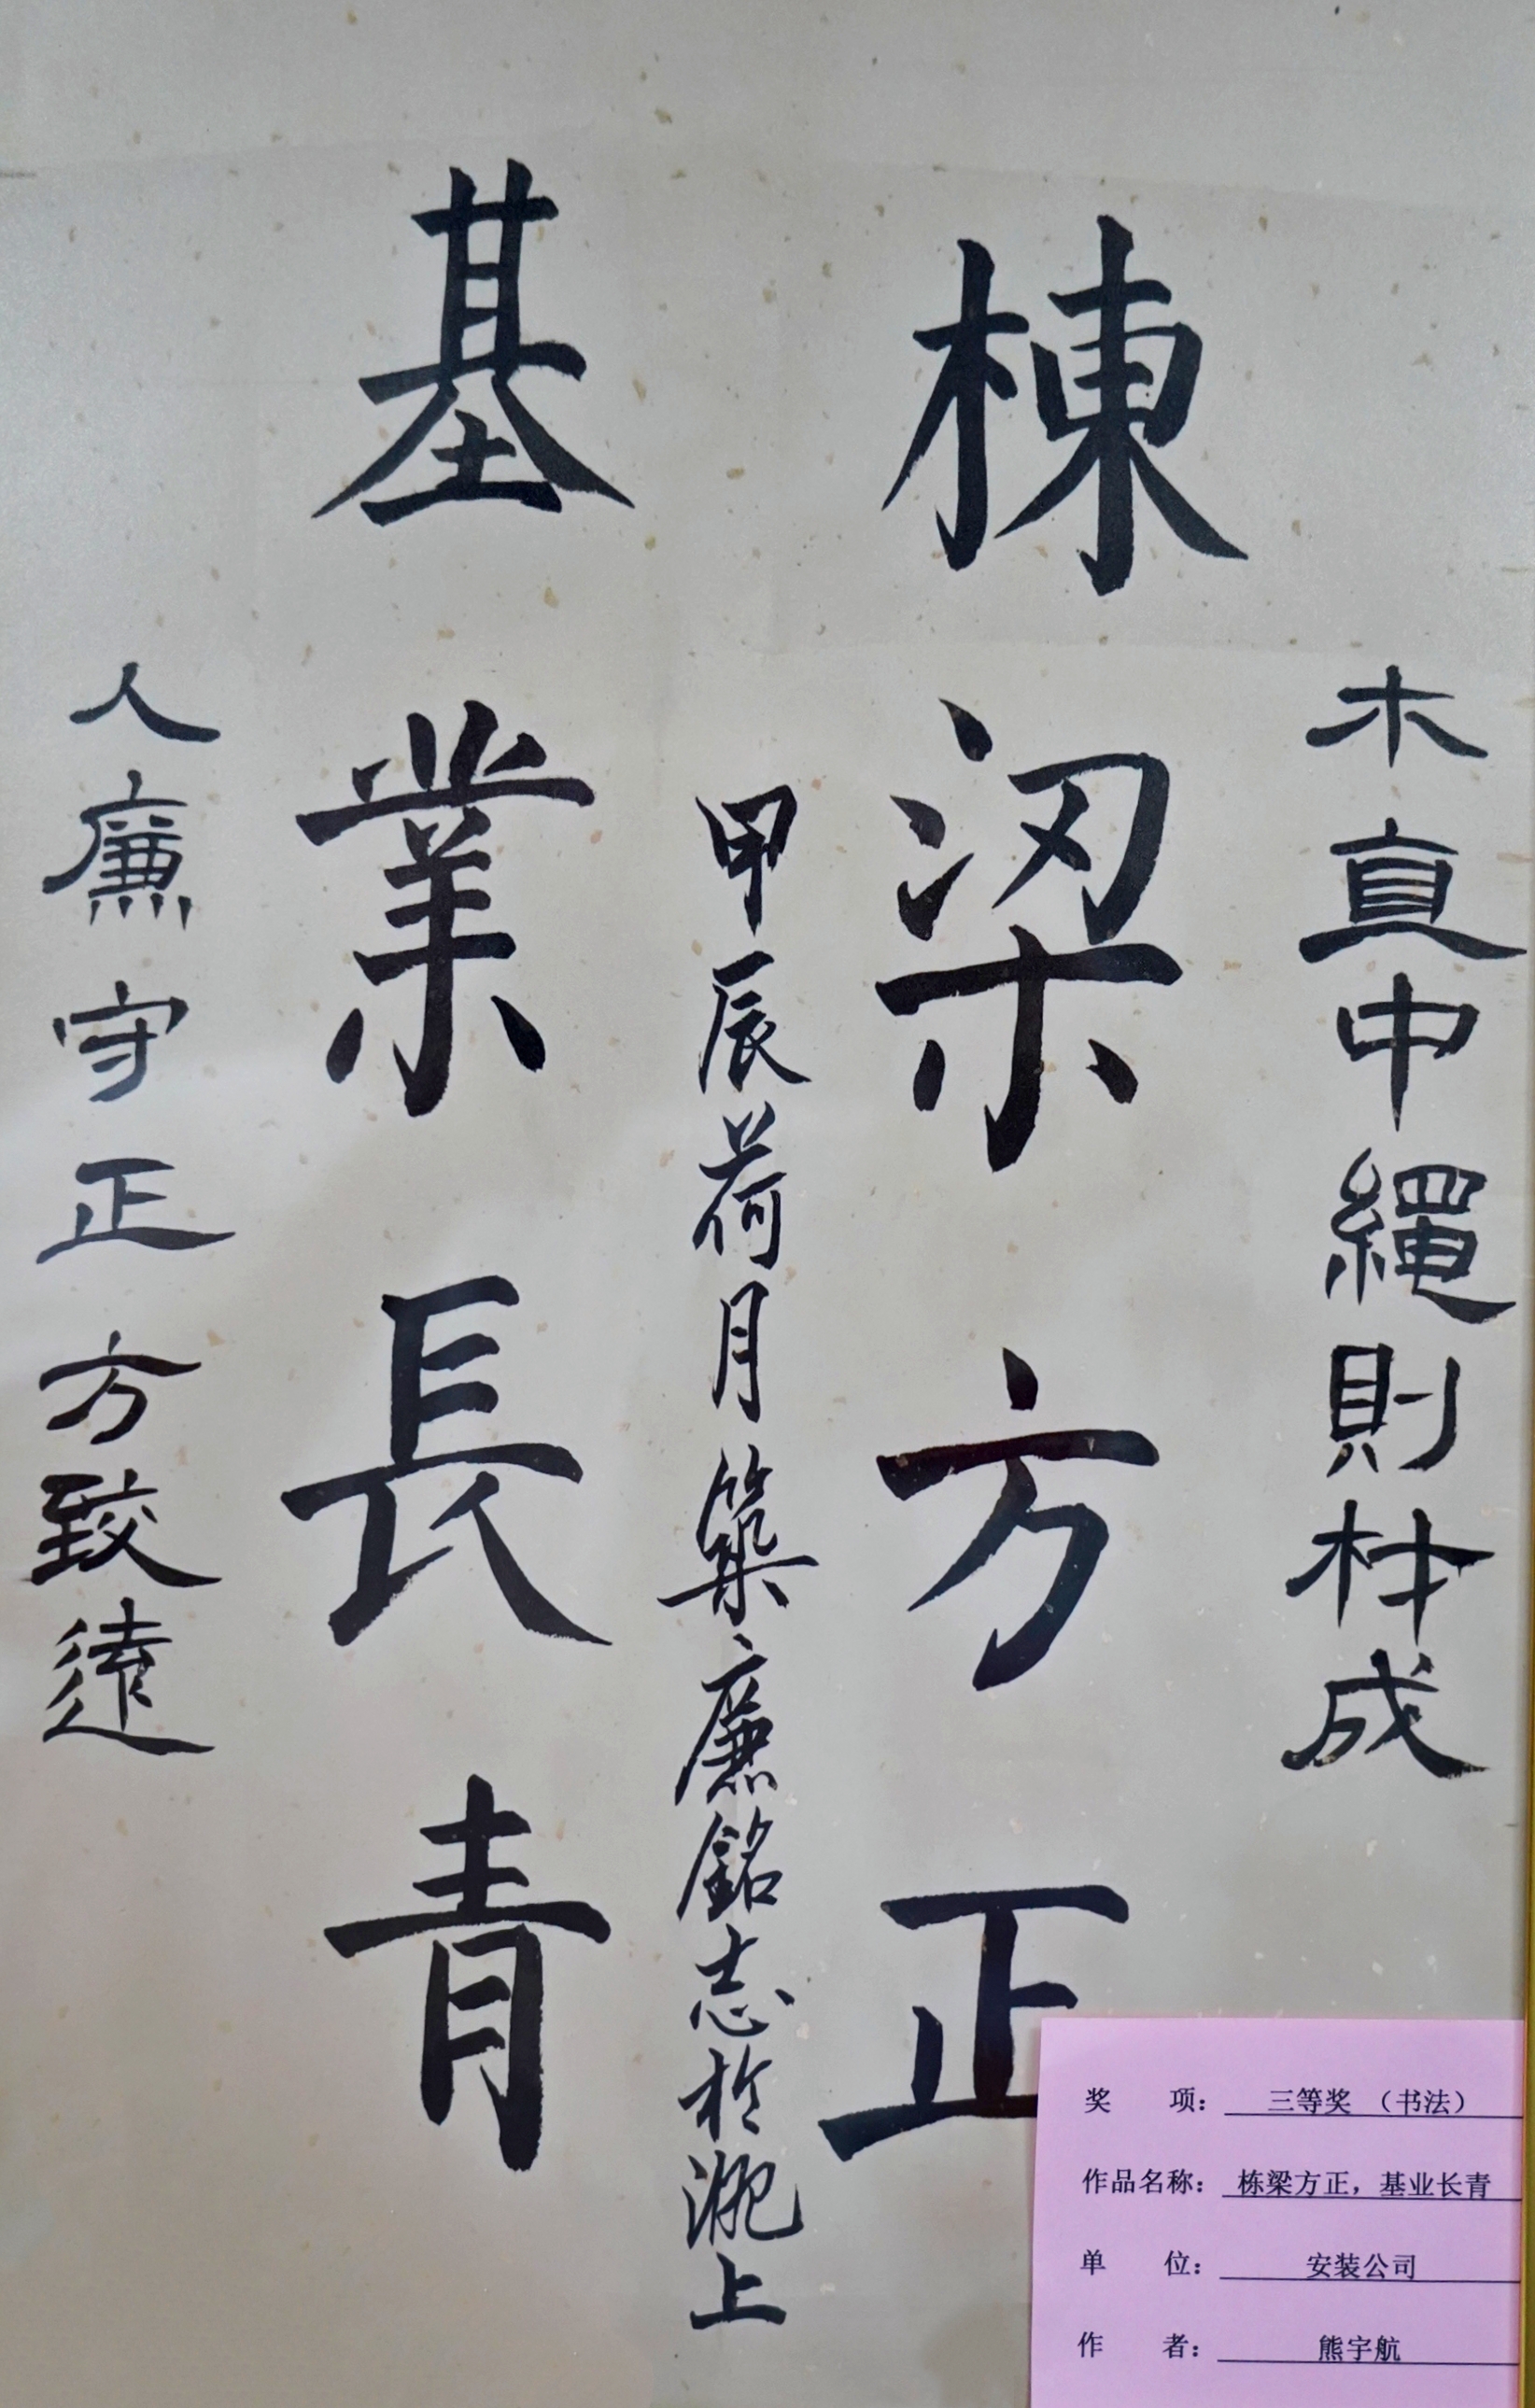 木直中繩則材成
棟梁方正
甲辰荷月築廉銘志於滬上
基業長青
人廉守正方致遠
奖 项： 三等奖 （书法）
作品名称： 栋梁方正，基业长青
单 位： 安装公司
作 者： 熊宇航